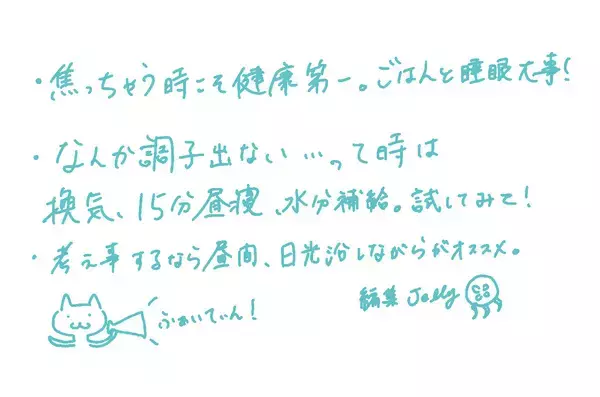 ・焦っちゃう時こそ健康第一。ごはんと睡眠大事!
・なんか調子出ない…って時は
換気、15分昼寝、水分補給。試してみて!
・考え事するなら昼間、日光浴しながらがオススメ。
ふぁいてぃん!
編集 Jelly